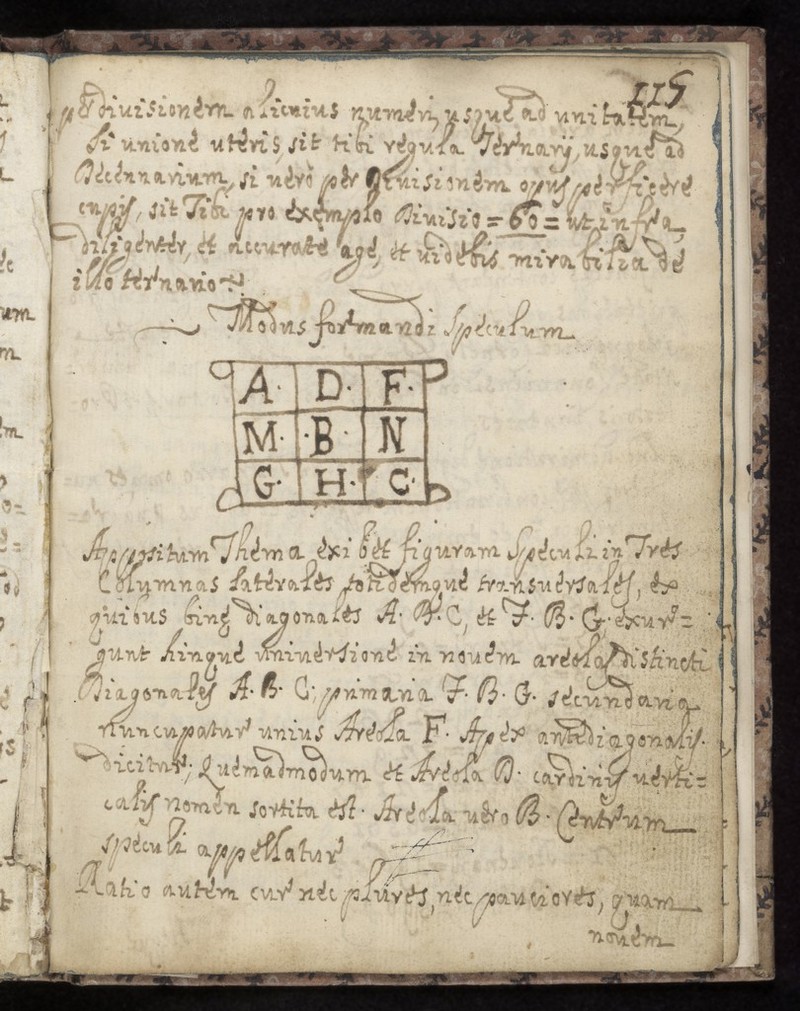 115
per divisionem alicuius numeri, usque ad unitatem,
si unione uteris, sit tibi regula Ternarij, usque ad
Decennarium, si verò per Divisionem opus perficere
cupis, sit Tibi pro exemplo Divisio = 60 = ut infra,
diligenter, et accurate age, et videbis mirabilia de
illo ternario
Modus formandi Speculum
A. D. F.
M. B. N
G. H. C.
Appositum Thema exibet figuram Speculi in Tres
Columnas laterales totidemque transversales, ex
quibus binę diagonales A. B. C, et F. B. G. exur=
gunt hinque universione in novem areolas distincti
Diagonales A. B. C; primaria F. B. G. secundaria
nuncupatur unius Areola F. Apex antediagonalis.
dicitur; Quemadmodum et Areola D. cardinis verti=
calis nomen sortita est. Areola vero B. Centrum
speculi appellatur
Ratio autem cur nec plures, nec pauciores, quam
novem